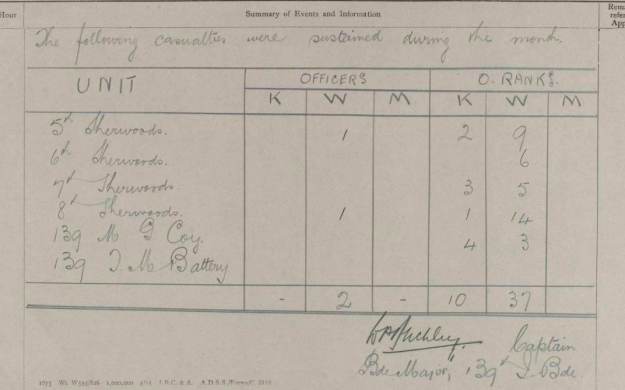 Hour Summary of Events and Information
The following casualties were sustained during the month.
UNIT OFFICERS O. RANKS.
K W M K W M
5th Sherwoods. 1 2 9
6th Sherwoods. 6
7th Sherwoods. 3 5
8th Sherwoods. 1 1 14
139 M G Coy. 4 3
139 T M Battery
- 2 - 10 37
Captain
Bde Major, 139th I. Bde